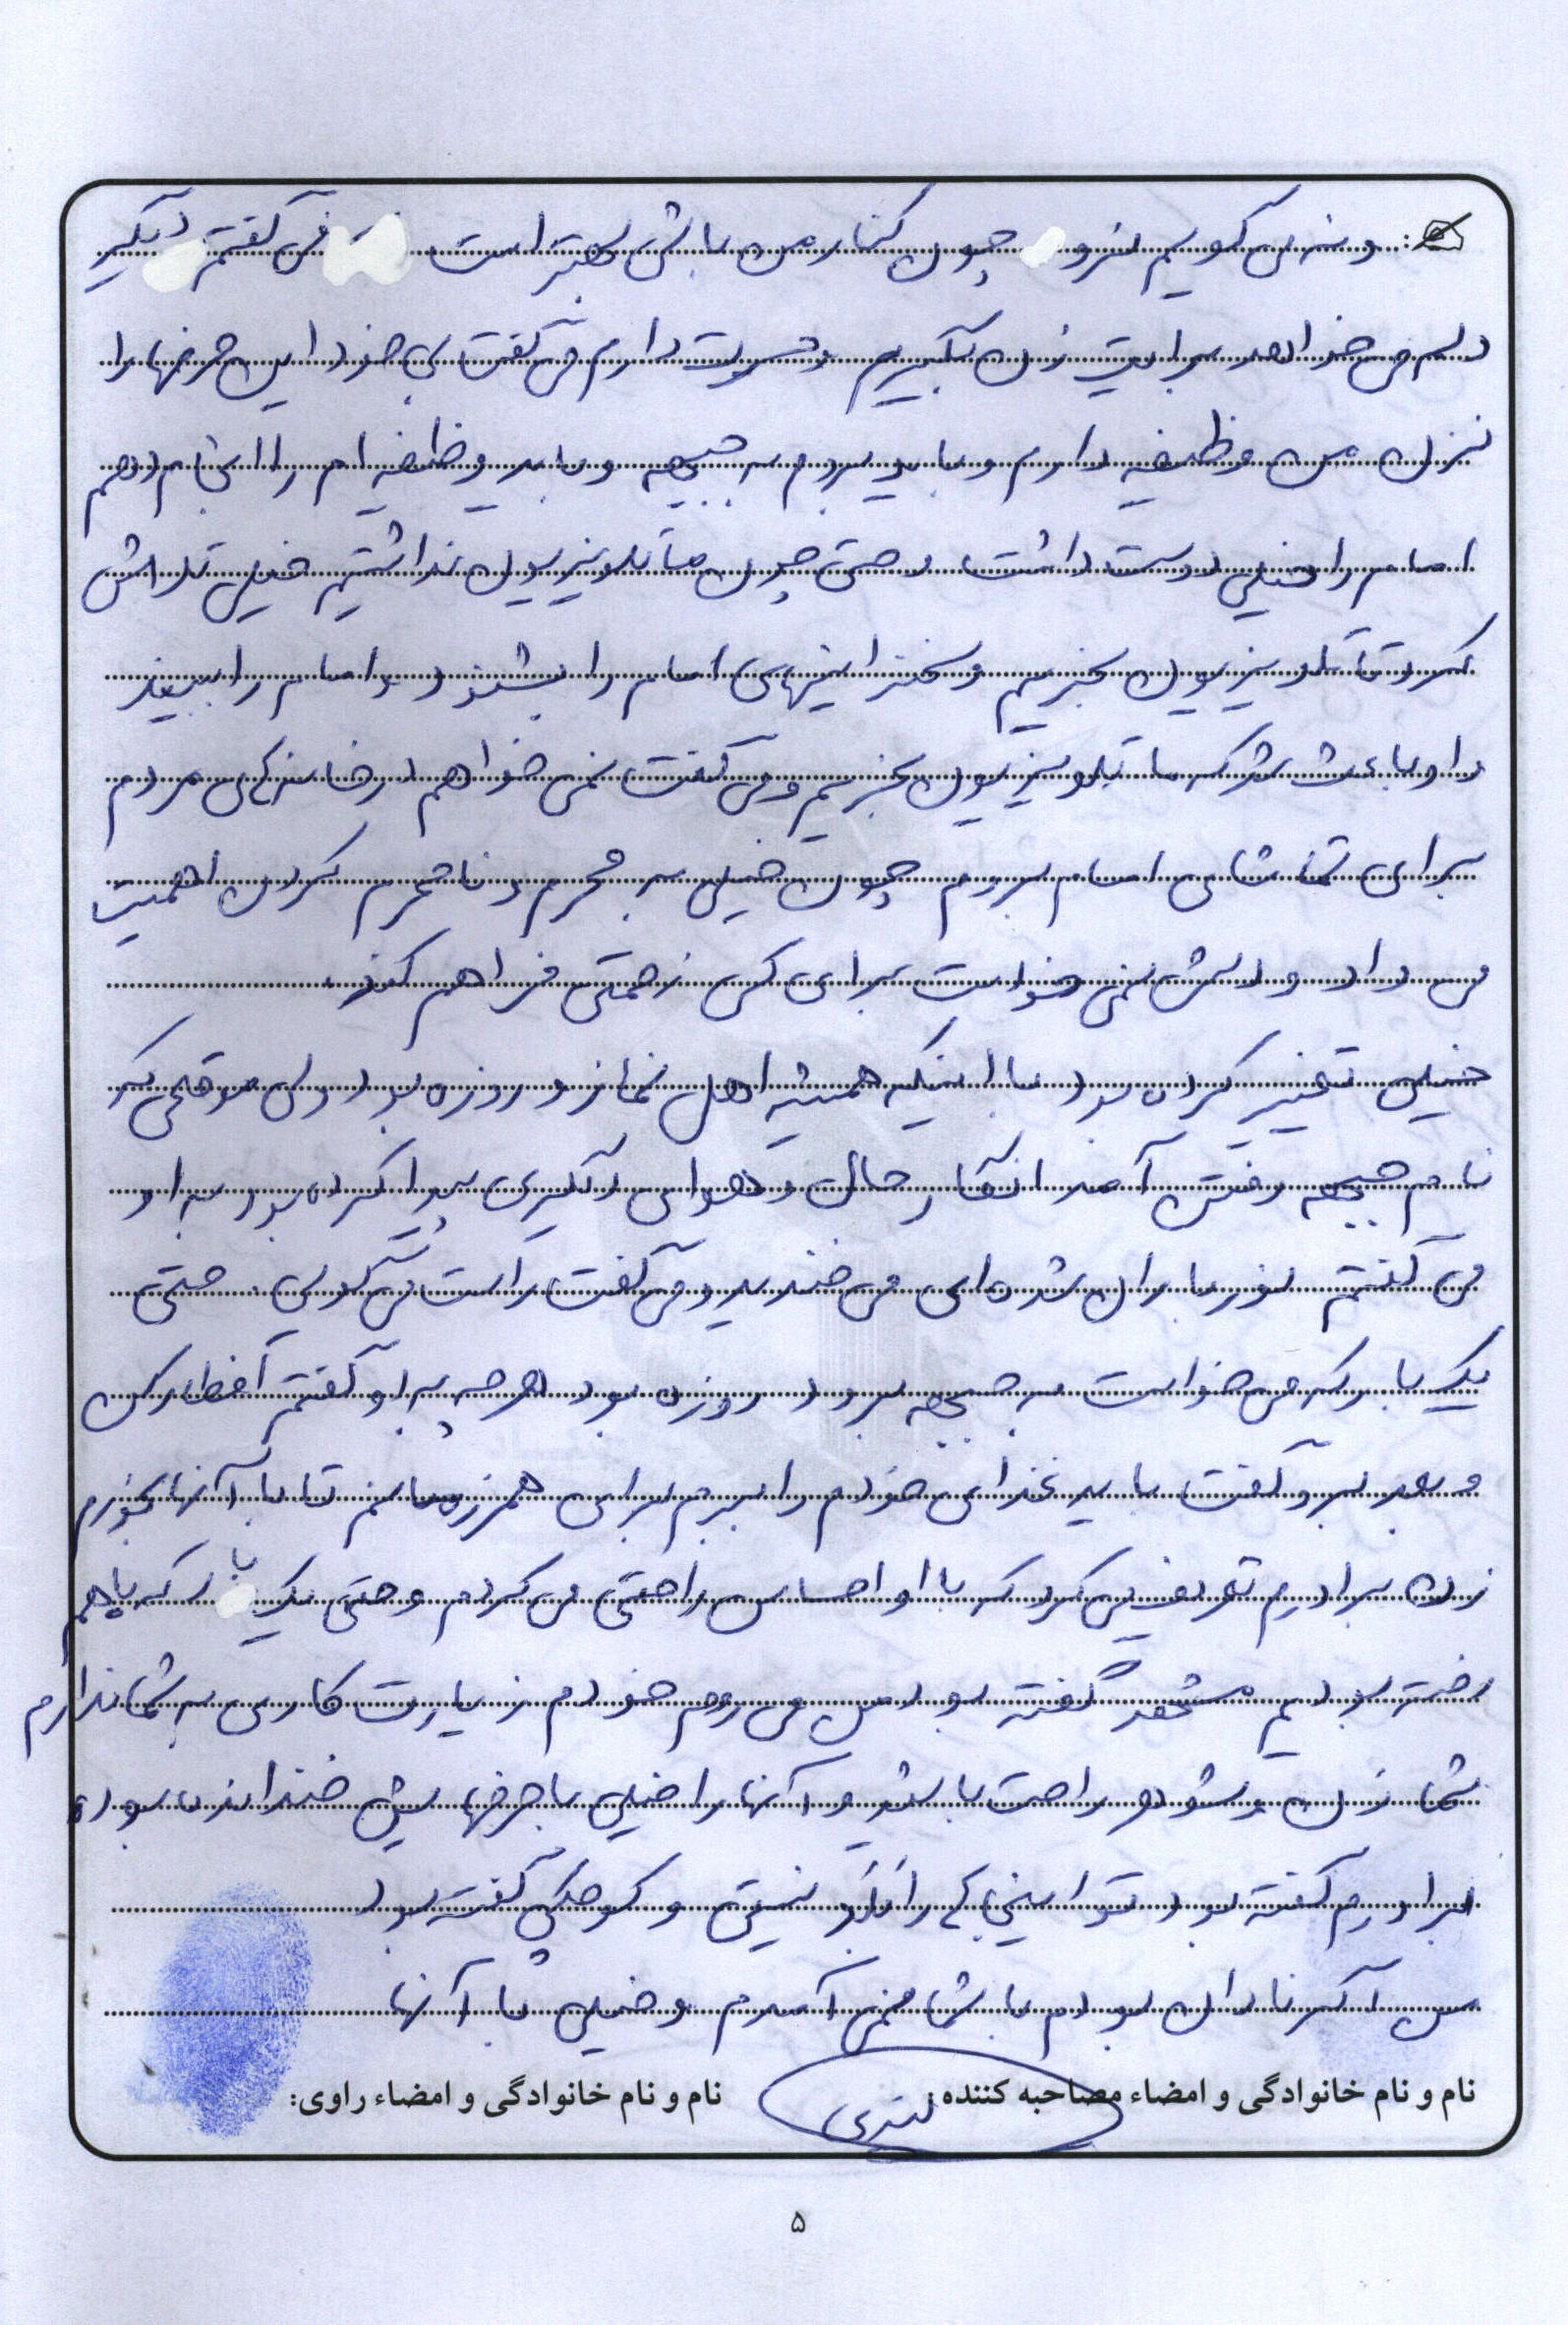 و نه می گویم نرو چون کنار من باشی بهتر است می گفتم دیگر
دلم می خواهد برایت زن بگیرم دوست دارم می گفت بی خود این حرفها را
نزن من وظیفه دارم و باید بروم به جبهه و باید وظیفه ام را انجام دهم
امام را خیلی دوست داشت و حتی چون ما تلویزیون نداشتیم خیلی تلاش
کرد تا تلویزیون بخریم و سخنرانیهای امام را بشنود و امام را ببیند
و او باعث شد که ما تلویزیون بخریم و می گفت نمی خواهم در خانه های مردم
برای تماشای امام بروم چون خیلی به محرم و نامحرم کردن اهمیت
می داد و دلش نمی خواست برای کسی زحمتی فراهم کند.
خیلی تغییر کرده بود با اینکه همیشه اهل نماز و روزه بود ولی موقعی که
نام جبهه رفتن آمد انگار حال و هوای دیگری پیدا کرده بود به او
می گفتم نور باران شده ای می خندید و می گفت راست می گویی. حتی
یک بار که می خواست به جبهه برود روزه بود هر چه به او گفتم افطار کن
و بعد برو گفت باید غذای خودم را ببرم برای همرزمانم تا با آنها بخورم
زن برادرم تعریف می کرد که با او احساس راحتی می کردم و حتی یک بار که با هم
رفته بودیم مشهد گفته بود من می روم خودم زیارت کاری به شما ندارم
شما زن و شوهر راحت باشید و آنها را خیلی با حرفهایش خندانده بود و
برادرم گفته بود تو اینجا را بلد نیستی و کوچکی گفته بود
من اگر نادان بودم با شما نمی آمدم و خیلی با آنها
نام و نام خانوادگی و امضاء مصاحبه کننده: نام و نام خانوادگی و امضاء راوی:
۵